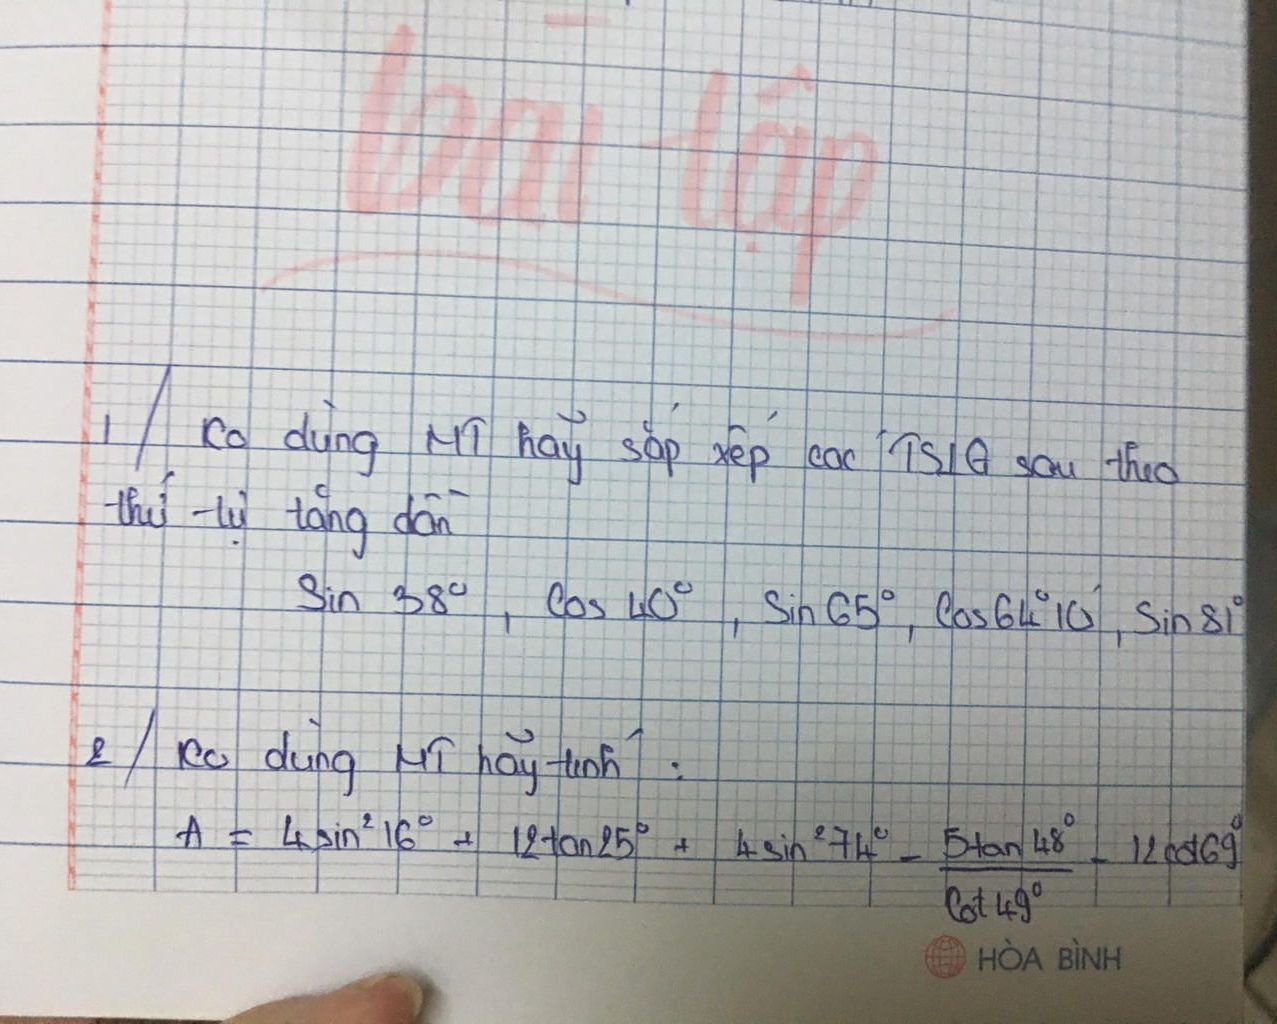 bài tập
1/ Ko dùng MT hãy sắp xếp các TSLG sau theo
thứ tự tăng dần
Sin 38°, Cos 40°, Sin 65°, Cos 64°10', Sin 81°
2/ Ko dùng MT hãy tính :
A = 4 sin² 16° + 12 tan 25° + 4 sin² 74° - 5 tan 48° / Cot 49° - 12 cot 69°
HÒA BÌNH